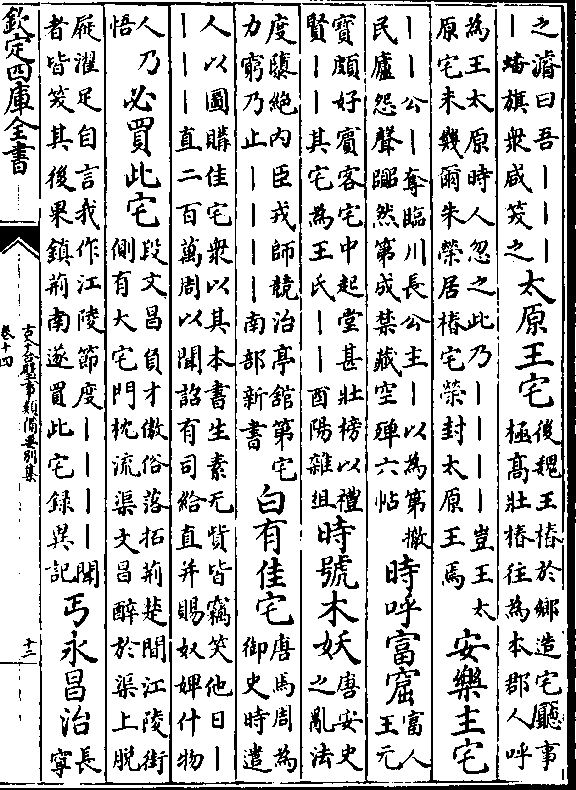 之濬曰吾｜｜｜
｜蟠旗衆咸笑之
太原王宅
後魏王椿於鄉造宅廳事
極髙壯椿往為本郡人呼
為王太原時人忽之此乃｜｜｜｜豈王太
原宅未幾爾朱榮居椿宅榮封太原王焉
安樂主宅
｜｜公｜奪臨川長公主｜以為第撤
民廬怨聲嘂然第成禁藏空殫六帖
時呼富窟
富人
王元
寶頗好賓客宅中起堂甚壯榜以禮
賢｜｜其宅為王氏｜｜酉陽雜俎
時號木妖
唐安史
之亂法
度隳絶内臣戎師競治亭館第宅
力窮乃止｜｜｜｜南部新書
白有佳宅
唐馬周為
御史時遣
人以圖購佳宅衆以其本書生素无貲皆竊笑他日｜
｜｜｜直二百萬周以聞詔有司給直并賜奴婢什物
人乃
悟
必買此宅
段文昌負才傲俗落拓荆楚間江陵街
側有大宅門枕流渠文昌醉於渠上脱
屣濯足自言我作江陵節度｜｜｜｜聞
者皆笑其後果鎮荆南遂買此宅録異記
丐永昌治
長
寧
欽定四庫全書
古今合璧事類備要别集
卷十四
十三